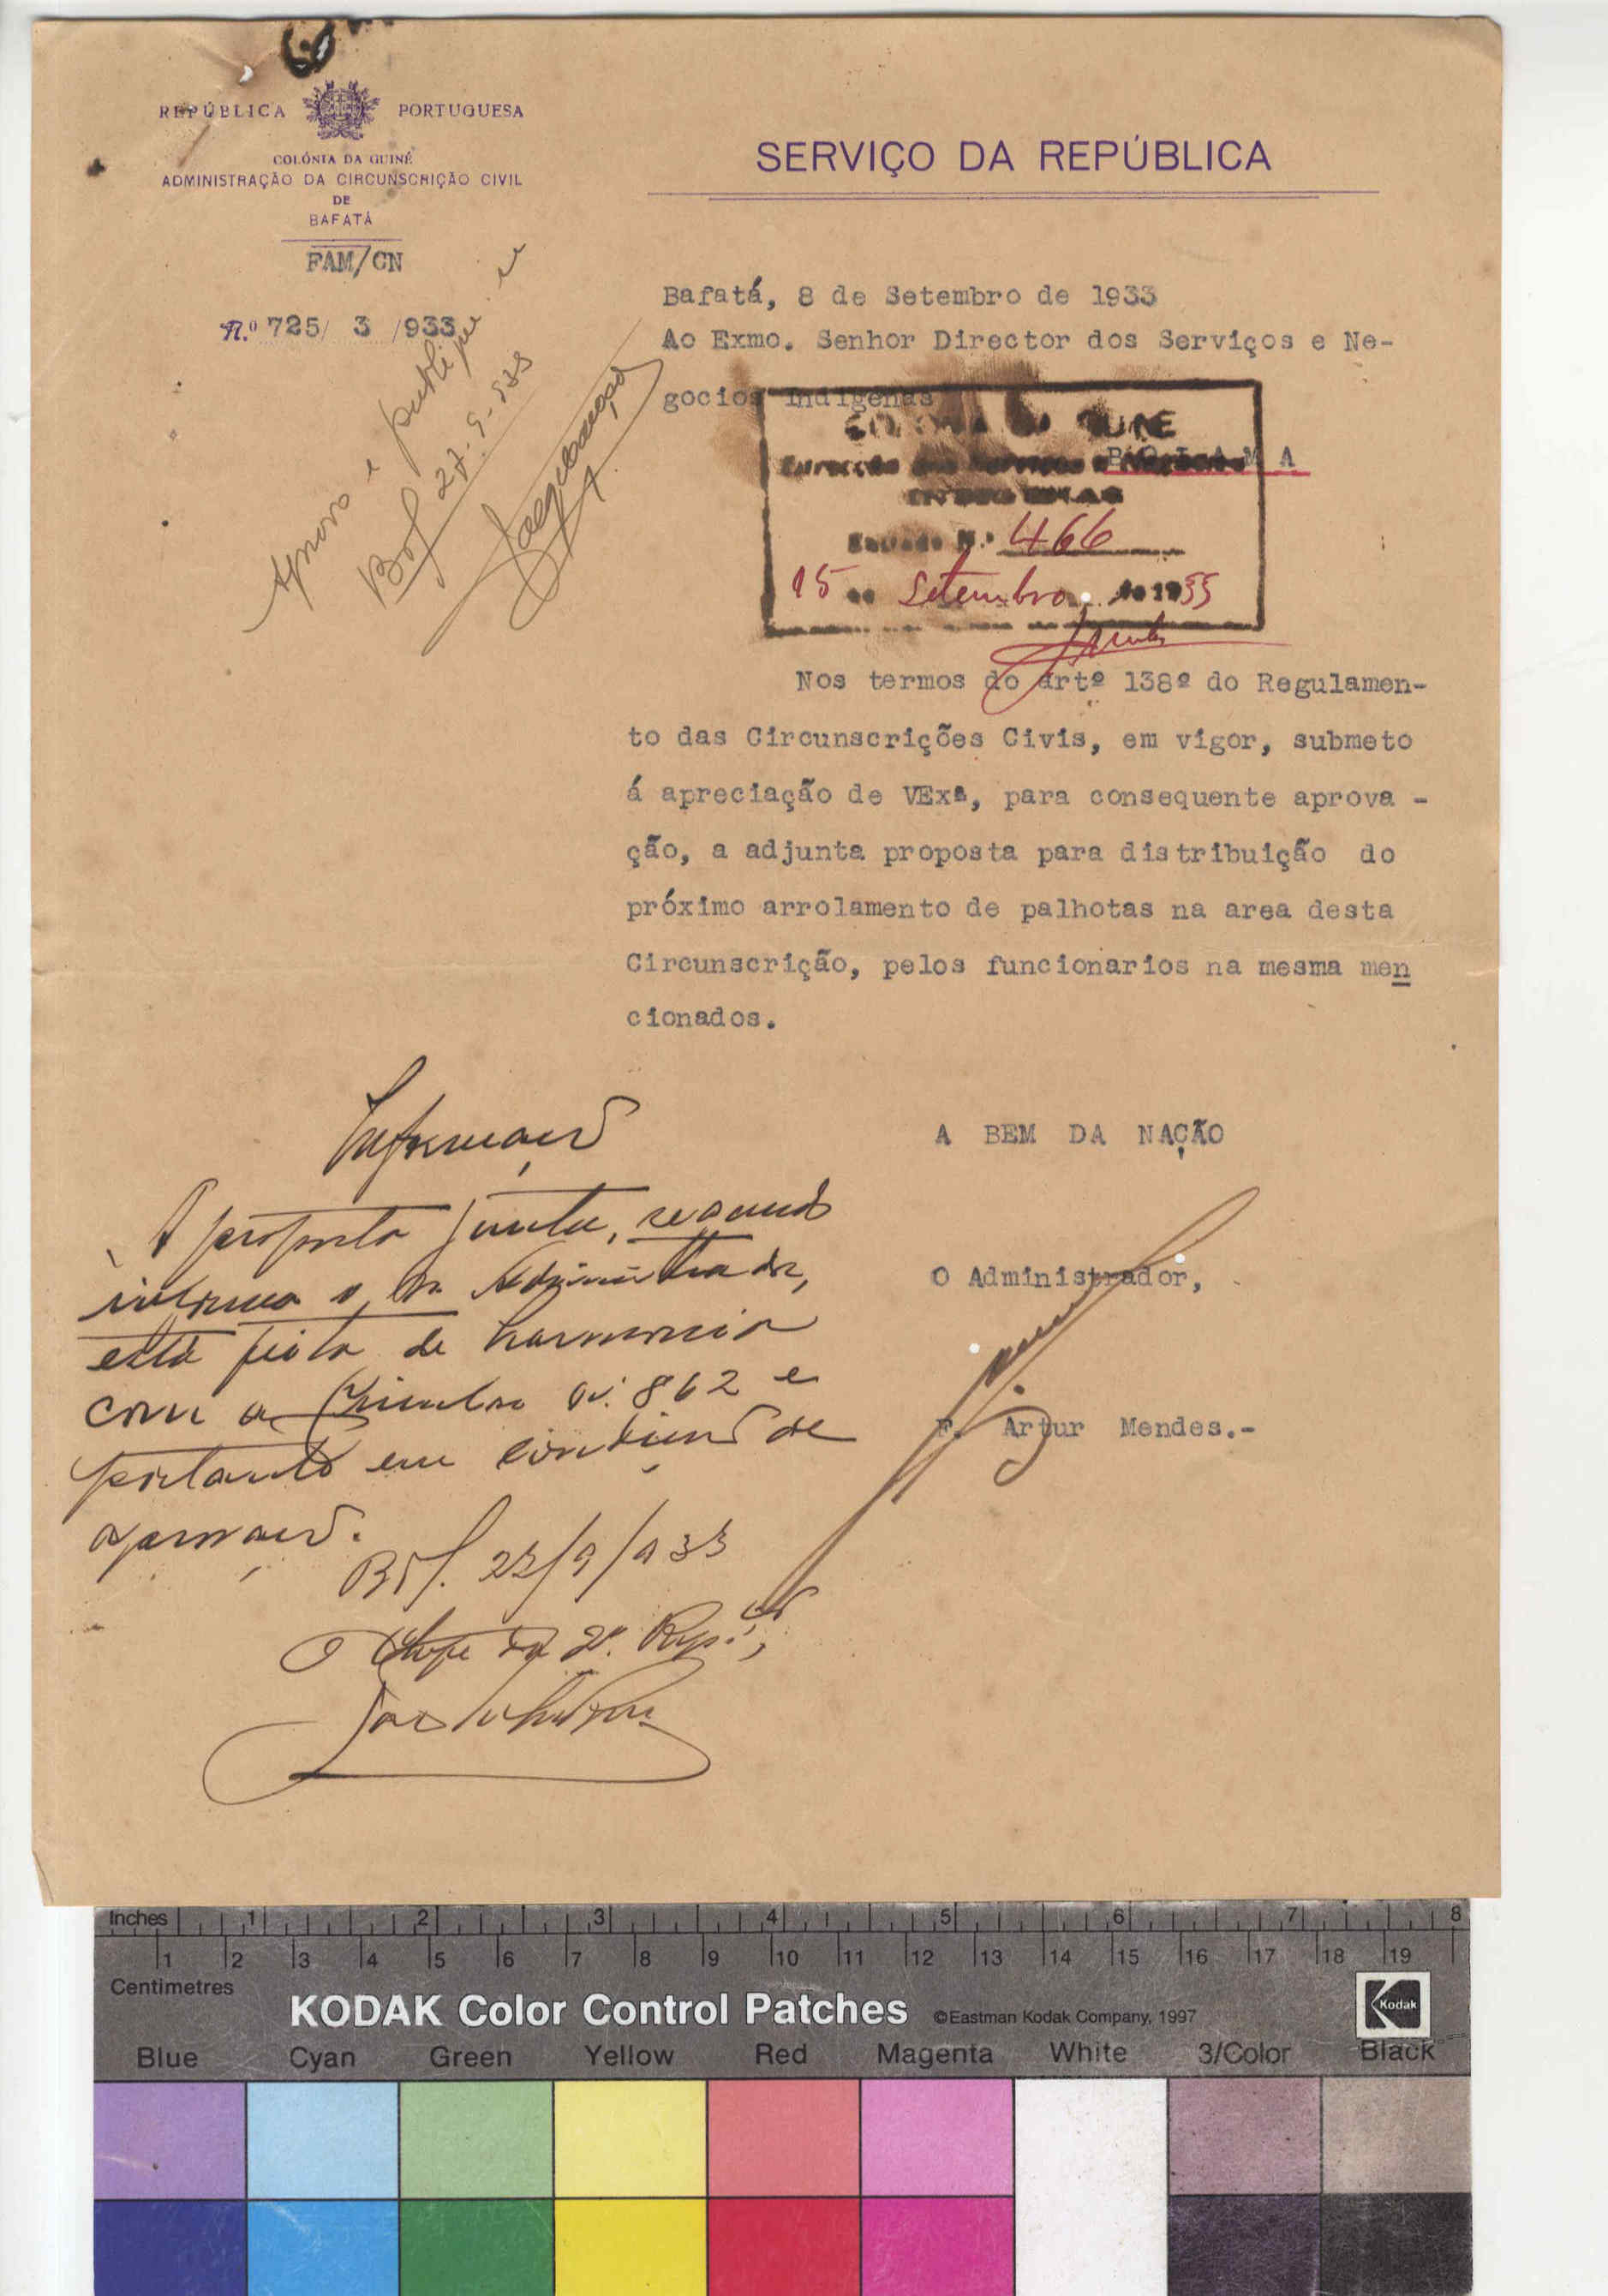 REPÚBLICA PORTUGUESA
COLÓNIA DA GUINÉ
ADMINISTRAÇÃO DA CIRCUNSCRIÇÃO CIVIL
DE
BAFATÁ
FAM/CN
N.º 725/ 3 /933
Aprovo e publique-se
Bol. 27-9-933
SERVIÇO DA REPÚBLICA
Bafatá, 8 de Setembro de 1933
Ao Exmo. Senhor Director dos Serviços e Ne-
gocios Indigenas
BOLAMA
COLONIA DA GUINE
Direcção dos Serviços e Negocios
INDIGENAS
Entrada N.º 466
15 de Setembro de 1933
Nos termos do artº 138º do Regulamen-
to das Circunscrições Civis, em vigor, submeto
á apreciação de VExª, para consequente aprova -
ção, a adjunta proposta para distribuição do
próximo arrolamento de palhotas na area desta
Circunscrição, pelos funcionarios na mesma men
cionados.
A BEM DA NAÇÃO
O Administrador,
F. Artur Mendes.-
Informação
A proposta junta, segundo
informa o Sr. Administrador,
está feita de harmonia
com a Circular nº. 862 e
portanto em condições de
aprovação.
Bol. 23/9/933
O Chefe da 2ª. Repão,
Inches 1 2 3 4 5 6 7 8
1 2 3 4 5 6 7 8 9 10 11 12 13 14 15 16 17 18 19
Centimetres
KODAK Color Control Patches ©Eastman Kodak Company, 1997
Kodak
Blue Cyan Green Yellow Red Magenta White 3/Color Black